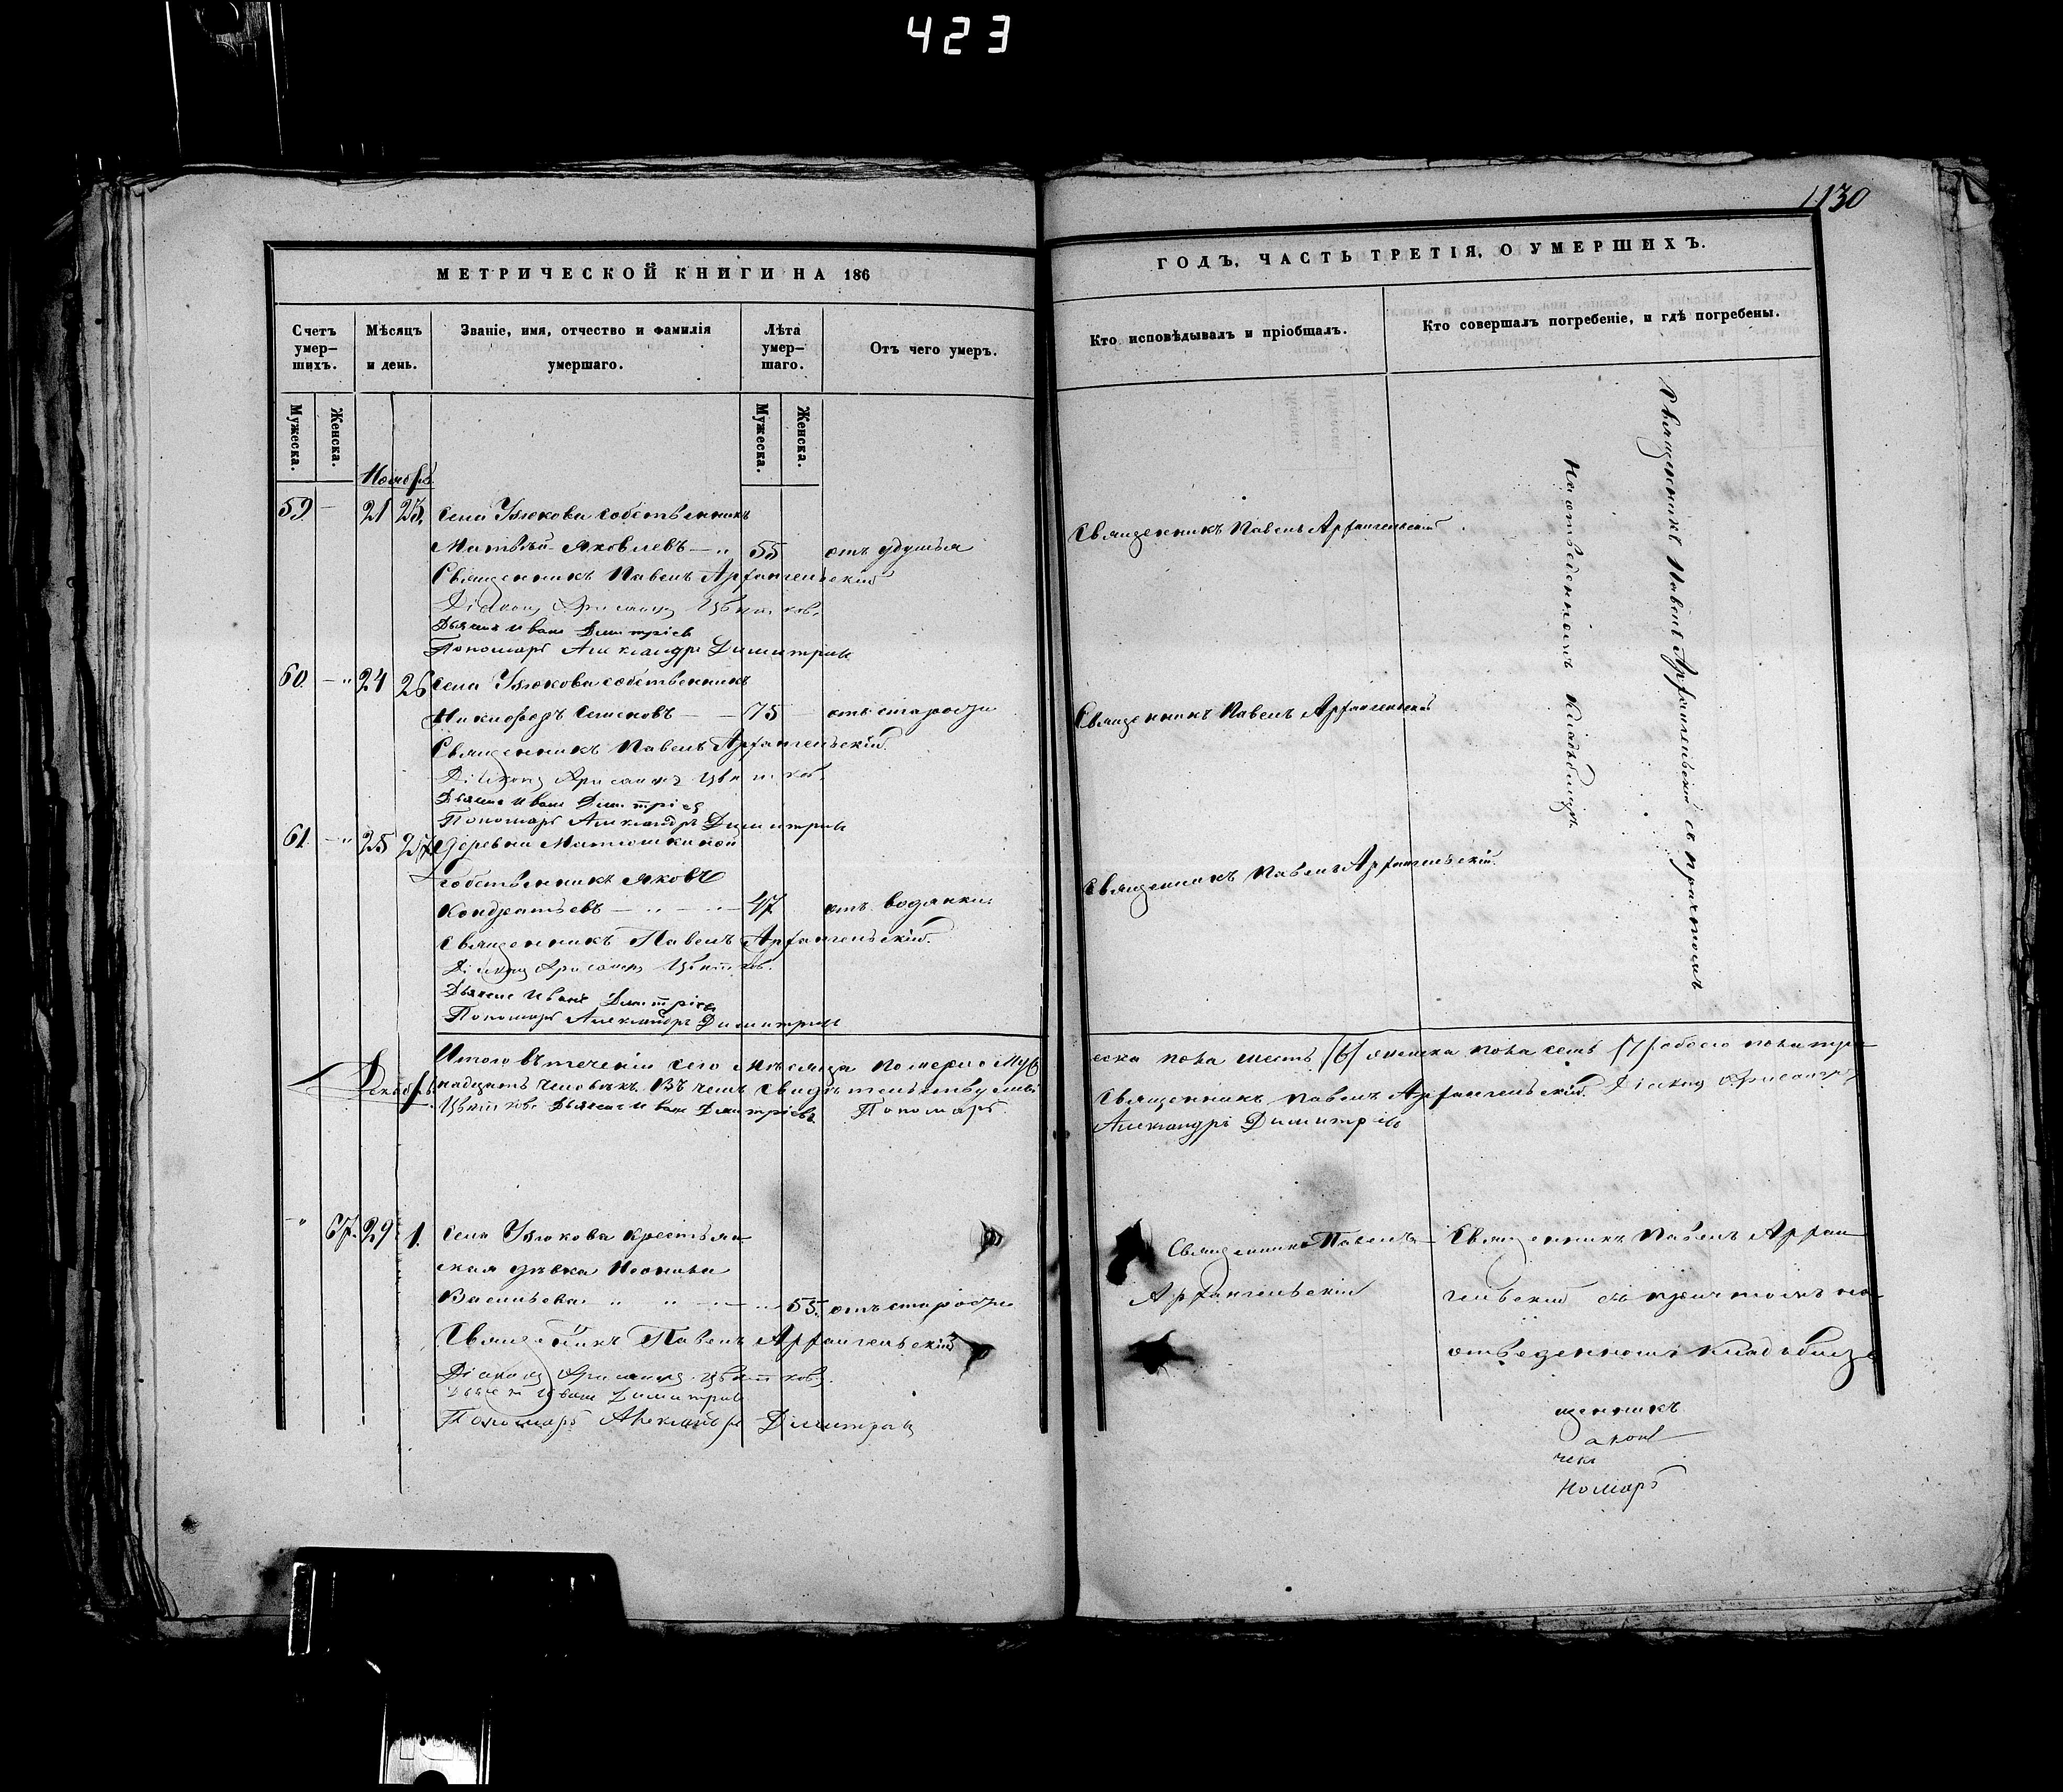 423
1130
МЕТРИЧЕСКОЙ КНИГИ НА 186
Счетъ умер-шихъ.
Мѣсяцъ и день.
Званіе, имя, отчество и фамилія умершаго.
Лѣта умер-шаго.
Отъ чего умеръ.
Мужеска.
Женска.
Мужеска.
Женска.
Ноябрь
59 21 23 Села Узюкова собственникъ
Матвѣй Яковлевъ 55 отъ удушья
Священникъ Павелъ Архангельскій
Діаконъ Цвѣтковъ
Дьячекъ Иванъ Димитріев
Пономарь Александръ Димитріев
60 24 26 Села Узюкова собственникъ
Никифоръ 75 отъ старости
Священникъ Павелъ Архангельскій
Діаконъ Цвѣтков
Дьячекъ Иванъ Димитріев
Пономарь Александръ Димитріев
61 25 27 деревни Матюшкиной
собственникъ Яковъ
Кондратьевъ 47 отъ водянки
Священникъ Павелъ Архангельскій
Діаконъ Цвѣтков
Дьячекъ Иванъ Димитріев
Пономарь Александръ Димитріев
Итого въ теченіи сего мѣсяца померло муж
надцать человѣкъ. Въ чемъ свидѣтельствуемъ
Декабрь
Цвѣтковъ Дьячекъ Иванъ Димитріевъ Пономарь
67 29 1 Села Узюкова крестьян
ская дѣвка
Васильева 55 отъ старости
Священникъ Павелъ Архангельскій
Діаконъ Цвѣтков
Дьячекъ Иванъ Димитріев
Пономарь Александръ Димитріев
ГОДЪ, ЧАСТЬ ТРЕТІЯ, О УМЕРШИХЪ.
Кто исповѣдывалъ и пріобщалъ.
Кто совершалъ погребеніе, и гдѣ погребены.
Священникъ Павелъ Архангельскій
Священникъ Павелъ Архангельскій
Священникъ Павелъ Архангельскій
Священникъ Павелъ Архангельскій съ причтомъ
На отведенномъ кладбищѣ.
еска пола шесть /6/ женска пола семь /7/ обоего пола три
Священникъ Павелъ Архангельскій. Діаконъ
Александръ Димитріев
Священникъ Павелъ
Архангельскій
Священникъ Павелъ Архан
гельскій съ причтомъ на
отведенномъ кладбищѣ
щенникъ
акон
чекъ
номарь